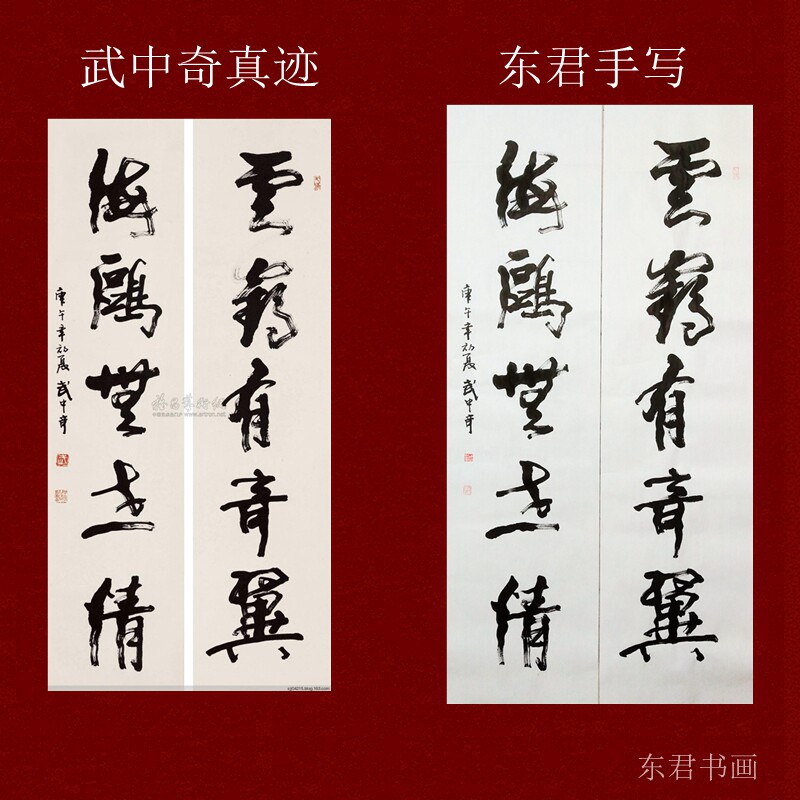 武中奇真迹
雲鶴有奇翼
海鷗無世情
庚午年初夏 武中奇
东君手写
雲鶴有奇翼
海鷗無世情
庚午年初夏 武中奇
东君书画